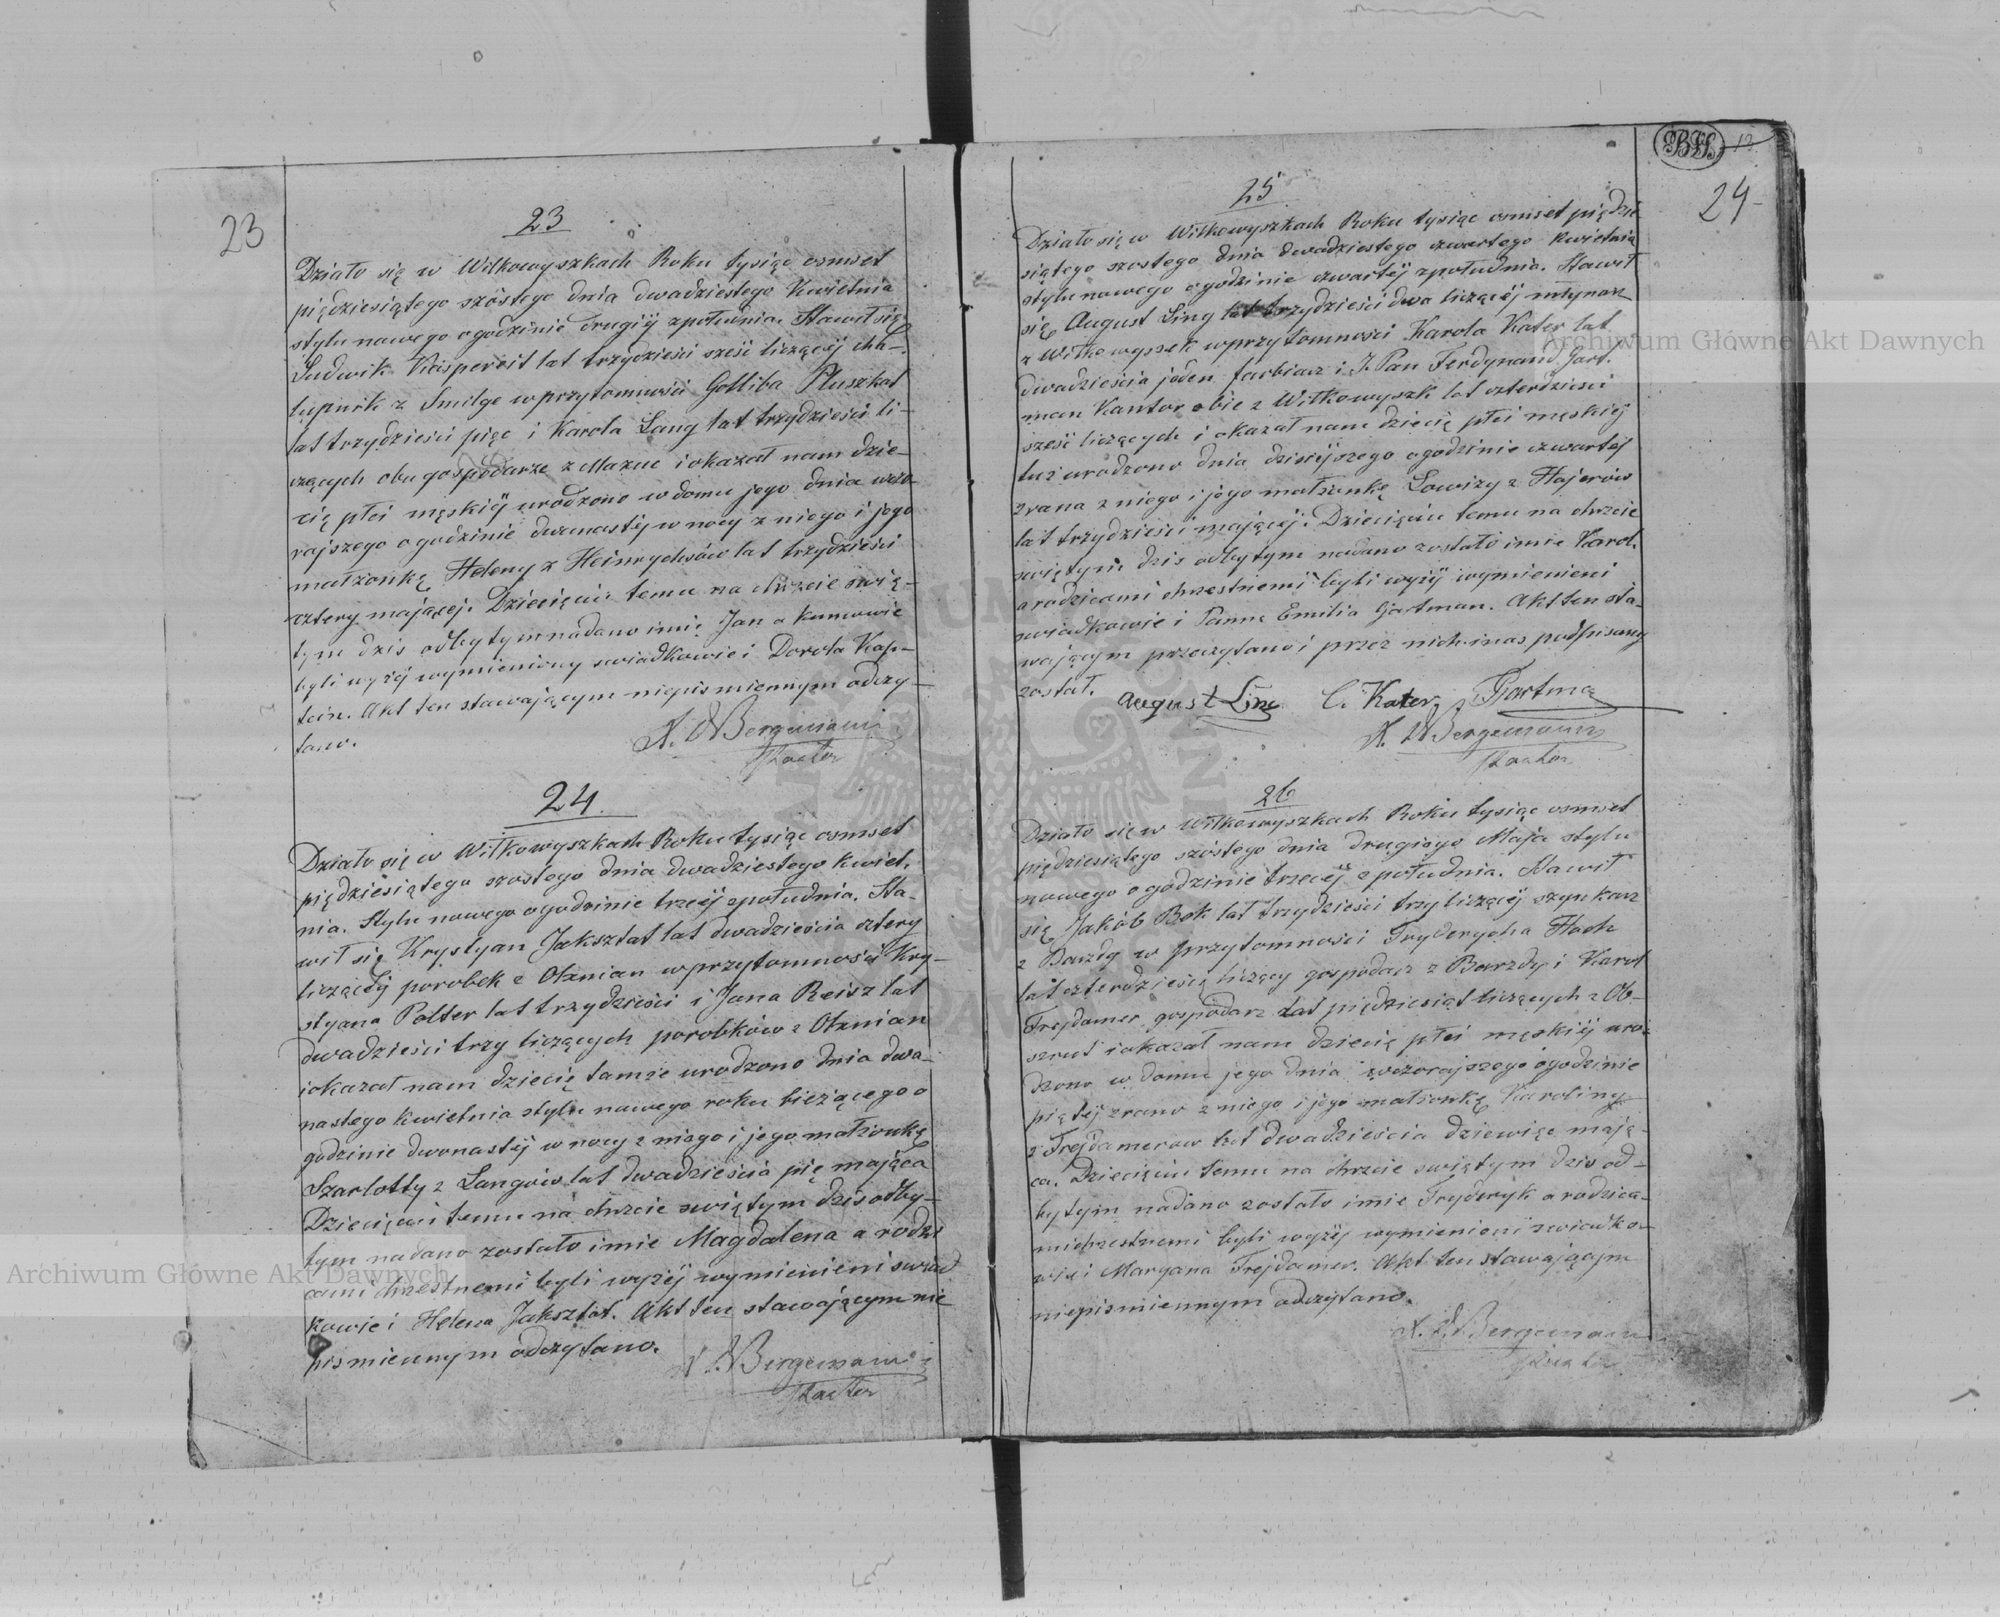 23
23
Działo się w Wiłkowyszkach Roku tysiąc osmset
piędziesiątego szóstego dnia dwadziestego Kwietnia
stylu nowego o godzinie drugiéj zpołudnia. Stawił się
Ludwik Kaspereit lat trzydzieści sześć liczącéj cha-
łupnik z Smilge w przytomności Gottliba Pluszkat
lat trzydzieści pięc i Karola Lang lat trzydzieści li-
czących obu gospodarze z Mazuc i okazał nam dzie-
cię płci męskiéj urodzone w domu jego dnia wczo-
rajszego o godzinie dwunastéj w nocy z niego i jego
małżonkę Heleny z Heinrychsów lat trzydzieści
cztery mającéj. Dziecięciu temu na chrzcie świę-
tym dzis odbytym nadano imię Jan a kumowie
byli wyżéj wymieniony swiadkowie i Dorota Kap-
tein. Akt ten stawającym niepismiennym odczy-
tano.
A. W Bergemann
Pastor
24.
Działo się w Wiłkowyszkach Roku tysiąc osmset
piędziesiątego szostego dnia dwadziestego kwiet.
nia. Stylu nowego o godzinie trzeciéj zpołudnia. Sta-
wił się Krystyan Jaksztat lat dwadzieścia cztery
liczącéj porobek z Oźnian w przytomności Kry-
styana Polter lat trzydzieści i Jana Reisz lat
dwadzieści trzy liczących porobków z Oźnian
i okazał nam dziecię tamże urodzono dnia dwa-
nastego kwietnia stylu nowego roku bieżącego o
godzinie dwonastéj w nocy z niego i jego małżonkę
Szarlotty z Langów lat dwadzieścia pię mająca
Dziecięciu temu na chrzcie swiętym dzis odby-
tym nadano zostało imie Magdalena a rodzi
cami chrzestnemi byli wyżéj wymienieni swiad
kowie i Helena Jaksztat. Akt ten stawającym nie
pismiennym odczytano.
A. W Bergemann
Pastor
12
24
25
Działo się w Wiłkowyszkach Roku tysiąc osmset piędzie
siątego szostego dnia dwadziestego czwartego Kwietnia
stylu nowego o godzinie czwartéj zpołudnia. Stawił
się August Ling lat trzydzieści dwa liczącéj młynarz
z Wiłkowyszek w przytomności Karola Kater lat
dwadzieścia jeden farbiarz i J. Pan Ferdynand Gart.
man Kantor obie z Wiłkowyszk lat czterdzieści
sześć liczących i okazał nam dziecię płci męskiéj
tuż urodzono dnia dzisiéjszego o godzinie czwartéj
zrana z niego i jego małżonkę Lowizy z Hajerów
lat trzydzieści mającéj. Dziecięciu temu na chrzcie
swiętym dzis odbytym nadano zostało imie Karol.
a rodzicami chrzestnemi byli wyżéj wymienieni
swiadkowie i Panna Emilia Gartman. Akt ten sta-
wającym przeczytano i przez nich i nas podpisany
został.
August Ling C. Kater, FGartman
A. W Bergemann
Pastor
26
Działo się w Wiłkowyszkach Roku tysiąc osmset
piędziesiątego szóstego dnia drugiego Maja stylu
nowego o godzinie trzeciéj zpołudnia. Stawił
się Jakób Bok lat trzydzieści trzy liczącéj szynkarz
z Barzdy w przytomności Fryderycha Hoch
lat czterdzieści liczący gospodarz z Barzdy i Karol
Frejdamer gospodarz lat piędziesiąt liczących z Ob-
szrut i okazał nam dziecię płci męskiéj uro-
dzono w domu jego dnia wczorajszego o godzinie
piątéj zrano z niego i jego małżonkę Karoliny
z Frejdamerow lat dwadzieścia dziewięc mają-
ca. Dziecięciu temu na chrzcie swiętym dzis od-
bytym nadano zostało imie Fryderyk a rodzica-
mi chrzestnemi byli wyżéj wymienieni swiadko-
wie i Maryana Frejdamer. Akt ten stawającym
niepismiennym odczytano.
A. W Bergemann
Pastor
Archiwum Główne Akt Dawnych
Archiwum Główne Akt Dawnych